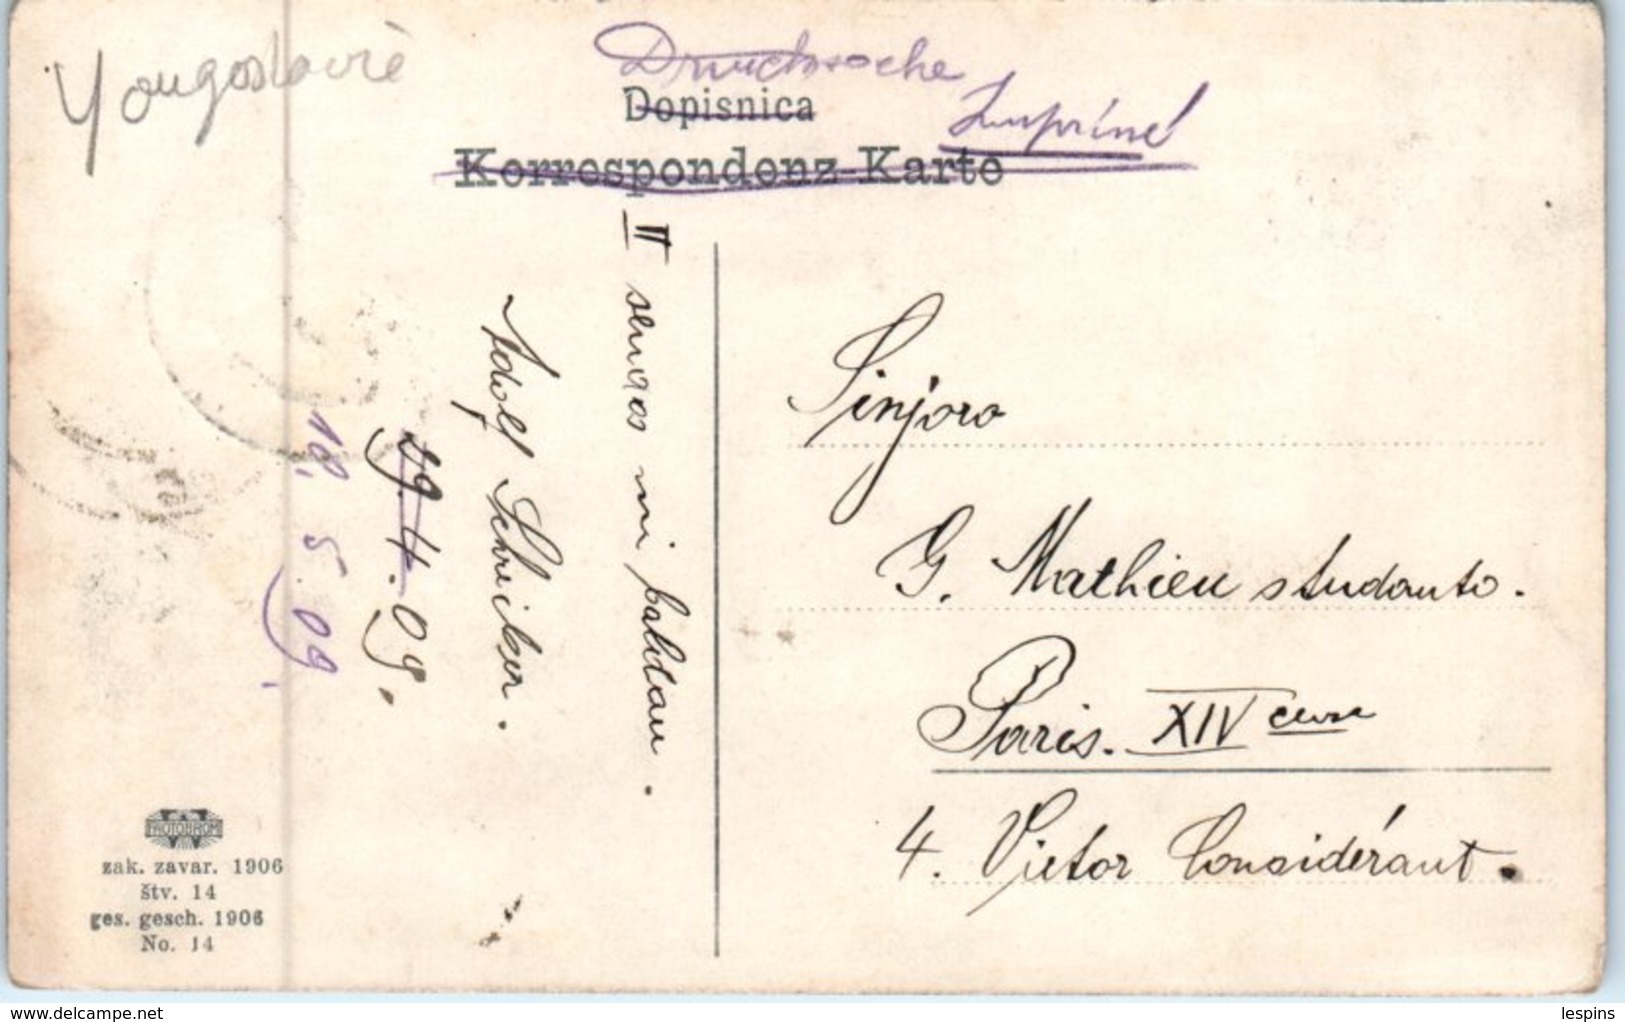 Yougoslavie
Drucksache
Dopisnica
Imprimé
Korrespondenz-Karte
II
mi
Adolf Schreiber.
29.4.09.
18.5.09.
Sinjoro
G. Mathieu studanto.
Paris. XIV
4. Victor Considérant.
PHOTOBROM
zak. zavar. 1906
štv. 14
ges. gesch. 1906
No. 14
www.delcampe.net
lespins